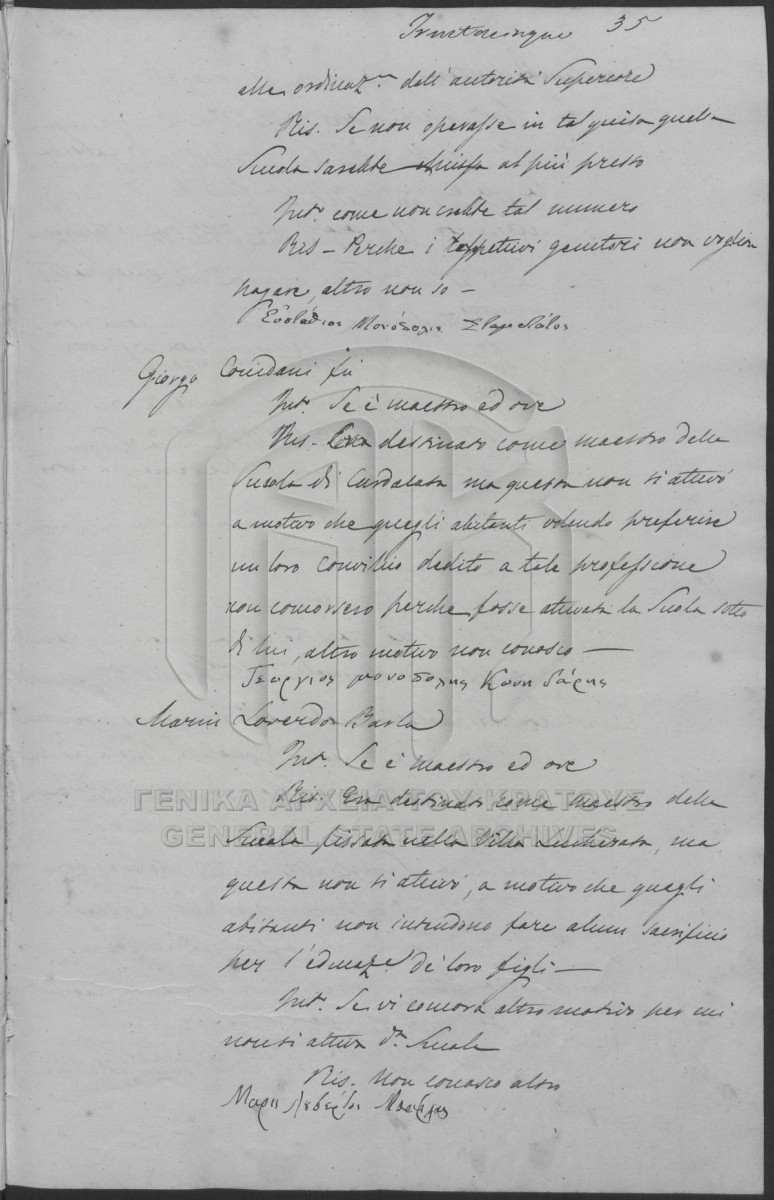 Trentacinque 35
alle ordinaz.n dell'autorità Superiore
Ris. Se non operasse in tal guisa quella
Scuola sarebbe chiusa al più presto
Int. come non crebbe tal numero
Ris - Perche i rispettivi genitori non voglion
pagare, altro non so -
Εὐστάθιος
Giorgo Conidari fu
Int. Se è maestro ed ove
Ris. Era destinato come maestro della
Scuola di Curdalata ma questa non si attivò
a motivo che quegli abitanti volendo preferire
un loro Convillico dedito a tale professione
non concorsero perche fosse attivata la Scuola sotto
di lui, altro motivo non conosco -
Γεώργιος Κονηδάρης
Marin Loverdo Basta
Int. Se è maestro ed ove
Ris. Era destinato come maestro della
Scuola fissata nella Villa, ma
questa non si attivò, a motivo che quegli
abitanti non intendono fare alcun sacrificio
per l'educaz.e de' loro figli -
Int. Se vi concorra altro motivo per cui
non si attiva d.a Scuola
Ris. Non conosco altro
ΓΕΝΙΚΑ ΑΡΧΕΙΑ ΤΟΥ ΚΡΑΤΟΥΣ
GENERAL STATE ARCHIVES